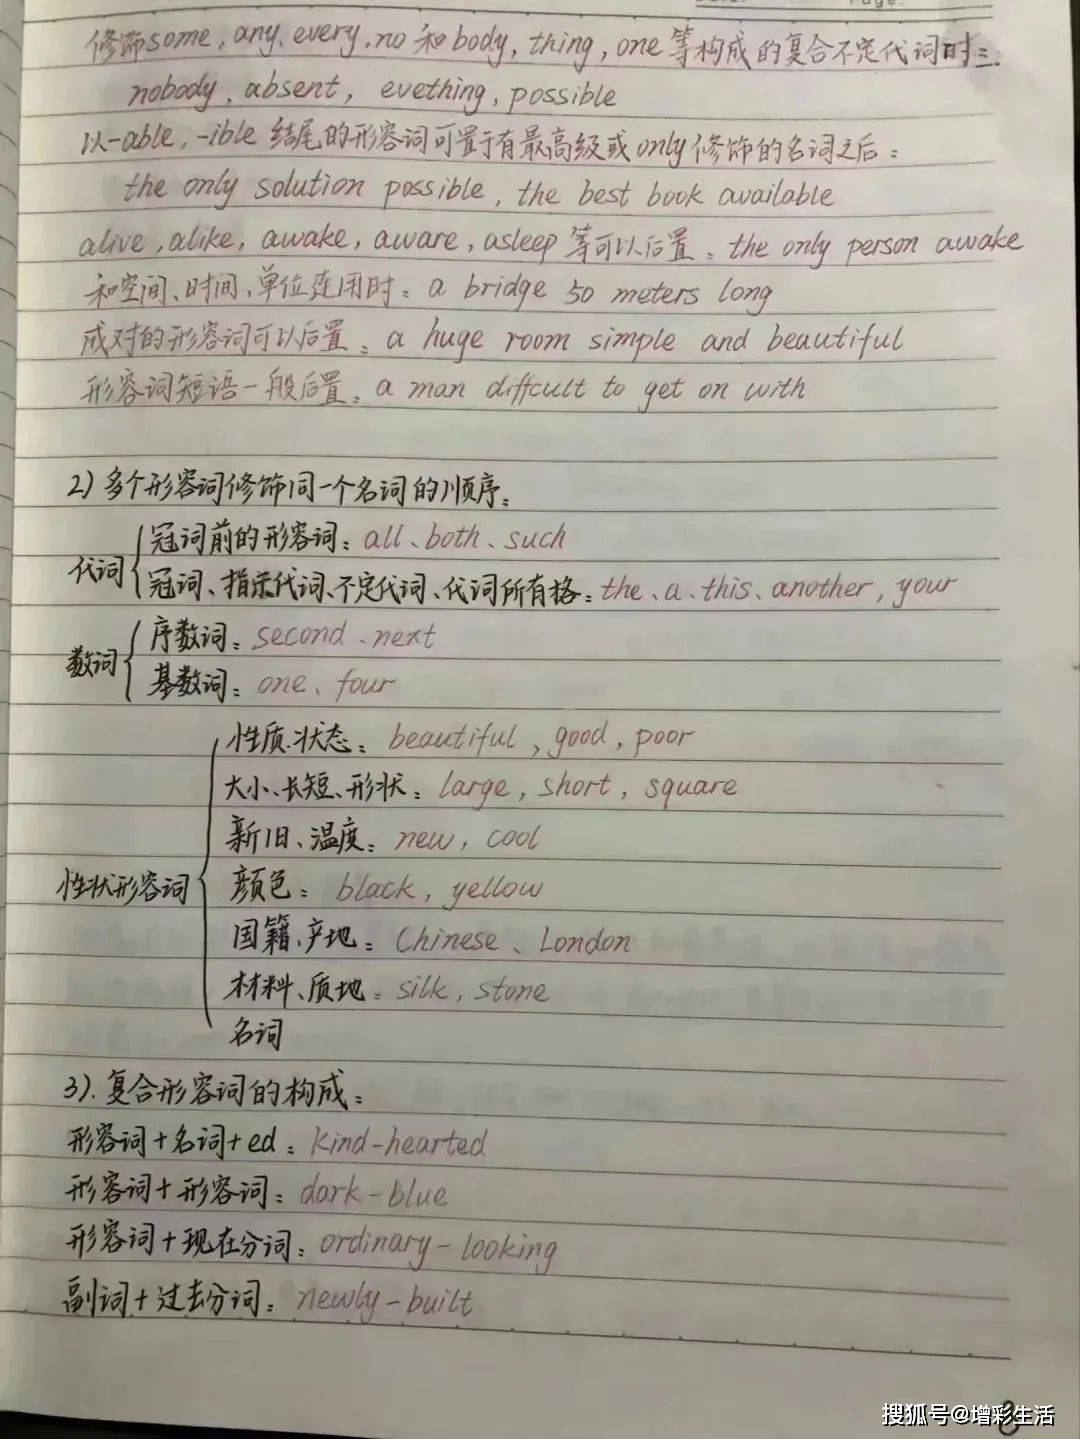 修饰some, any, every, no 和 body, thing, one 等构成的复合不定代词时:
nobody, absent, evething, possible
以-able, -ible 结尾的形容词可置于有最高级或only修饰的名词之后:
the only solution possible, the best book available
alive, alike, awake, aware, asleep 等可以后置: the only person awake
和空间、时间、单位连用时: a bridge 50 meters long
成对的形容词可以后置: a huge room simple and beautiful
形容词短语一般后置: a man diffcult to get on with
2) 多个形容词修饰同一个名词的顺序:
代词 冠词前的形容词: all、both、such
冠词、指示代词、不定代词、代词所有格: the、a、this、another, your
数词 序数词: second、next
基数词: one、four
性状形容词 性质、状态: beautiful, good, poor
大小、长短、形状: large, short, square
新旧、温度: new, cool
颜色: black, yellow
国籍、产地: Chinese、London
材料、质地: silk, stone
名词
3). 复合形容词的构成:
形容词+名词+ed: kind-hearted
形容词+形容词: dark-blue
形容词+现在分词: ordinary-looking
副词+过去分词: newly-built
搜狐号@增彩生活